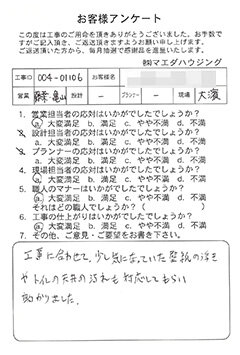 お客様アンケート
この度は工事のご用命を頂きありがとうございました。お手数で
すがご記入頂き、ご返送頂きますようお願い申し上げます。
ご返送頂いた方から、毎月抽選で感謝品を進呈いたします。
㈱マエダハウジング
工事ID 004-01106 お客様名
営業 亀山 設計 - プランナー - 現場 大濱
1. 営業担当者の応対はいかがでしたでしょうか？
a 大変満足 b. 満足 c. やや不満 d. 不満
2. 設計担当者の応対はいかがでしたでしょうか？
a. 大変満足 b. 満足 c. やや不満 d. 不満
3. プランナーの応対はいかがでしたでしょうか？
a. 大変満足 b. 満足 c. やや不満 d. 不満
4. 現場担当者の応対はいかがでしたでしょうか？
a 大変満足 b. 満足 c. やや不満 d. 不満
5. 職人のマナーはいかがでしたでしょうか？
a 大変満足 b. 満足 c. やや不満 d. 不満
それはどの職人でしょうか？（ ）
6. 工事の仕上がりはいかがでしたでしょうか？
a 大変満足 b. 満足 c. やや不満 d. 不満
7. その他、ご意見・ご要望をお書き下さい。
工事に合わせて、少し気になっていた壁紙の浮き
やトイレの天井の汚れも対応してもらい
助かりました。